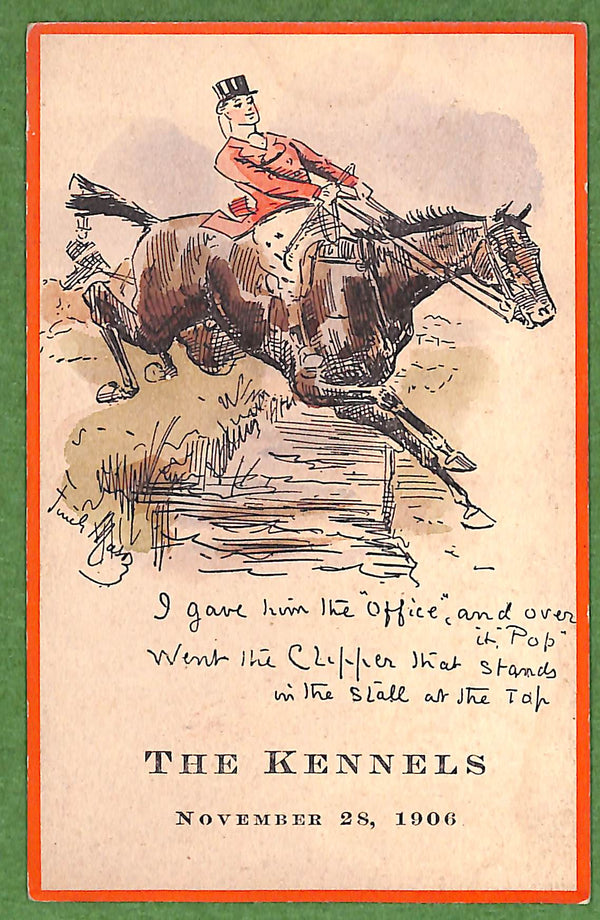 Finch Mason
I gave him the "Office", and over
it, "Pop"
Went the Clipper that stands
in the stall at the Top
THE KENNELS
NOVEMBER 28, 1906